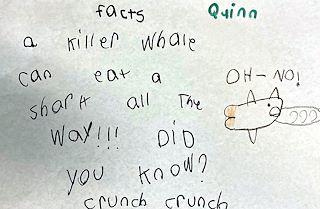 facts Quinn
a killer whale
can eat a
shark all The
Way!!! DiD
you know?
crunch crunch
OH-NO!